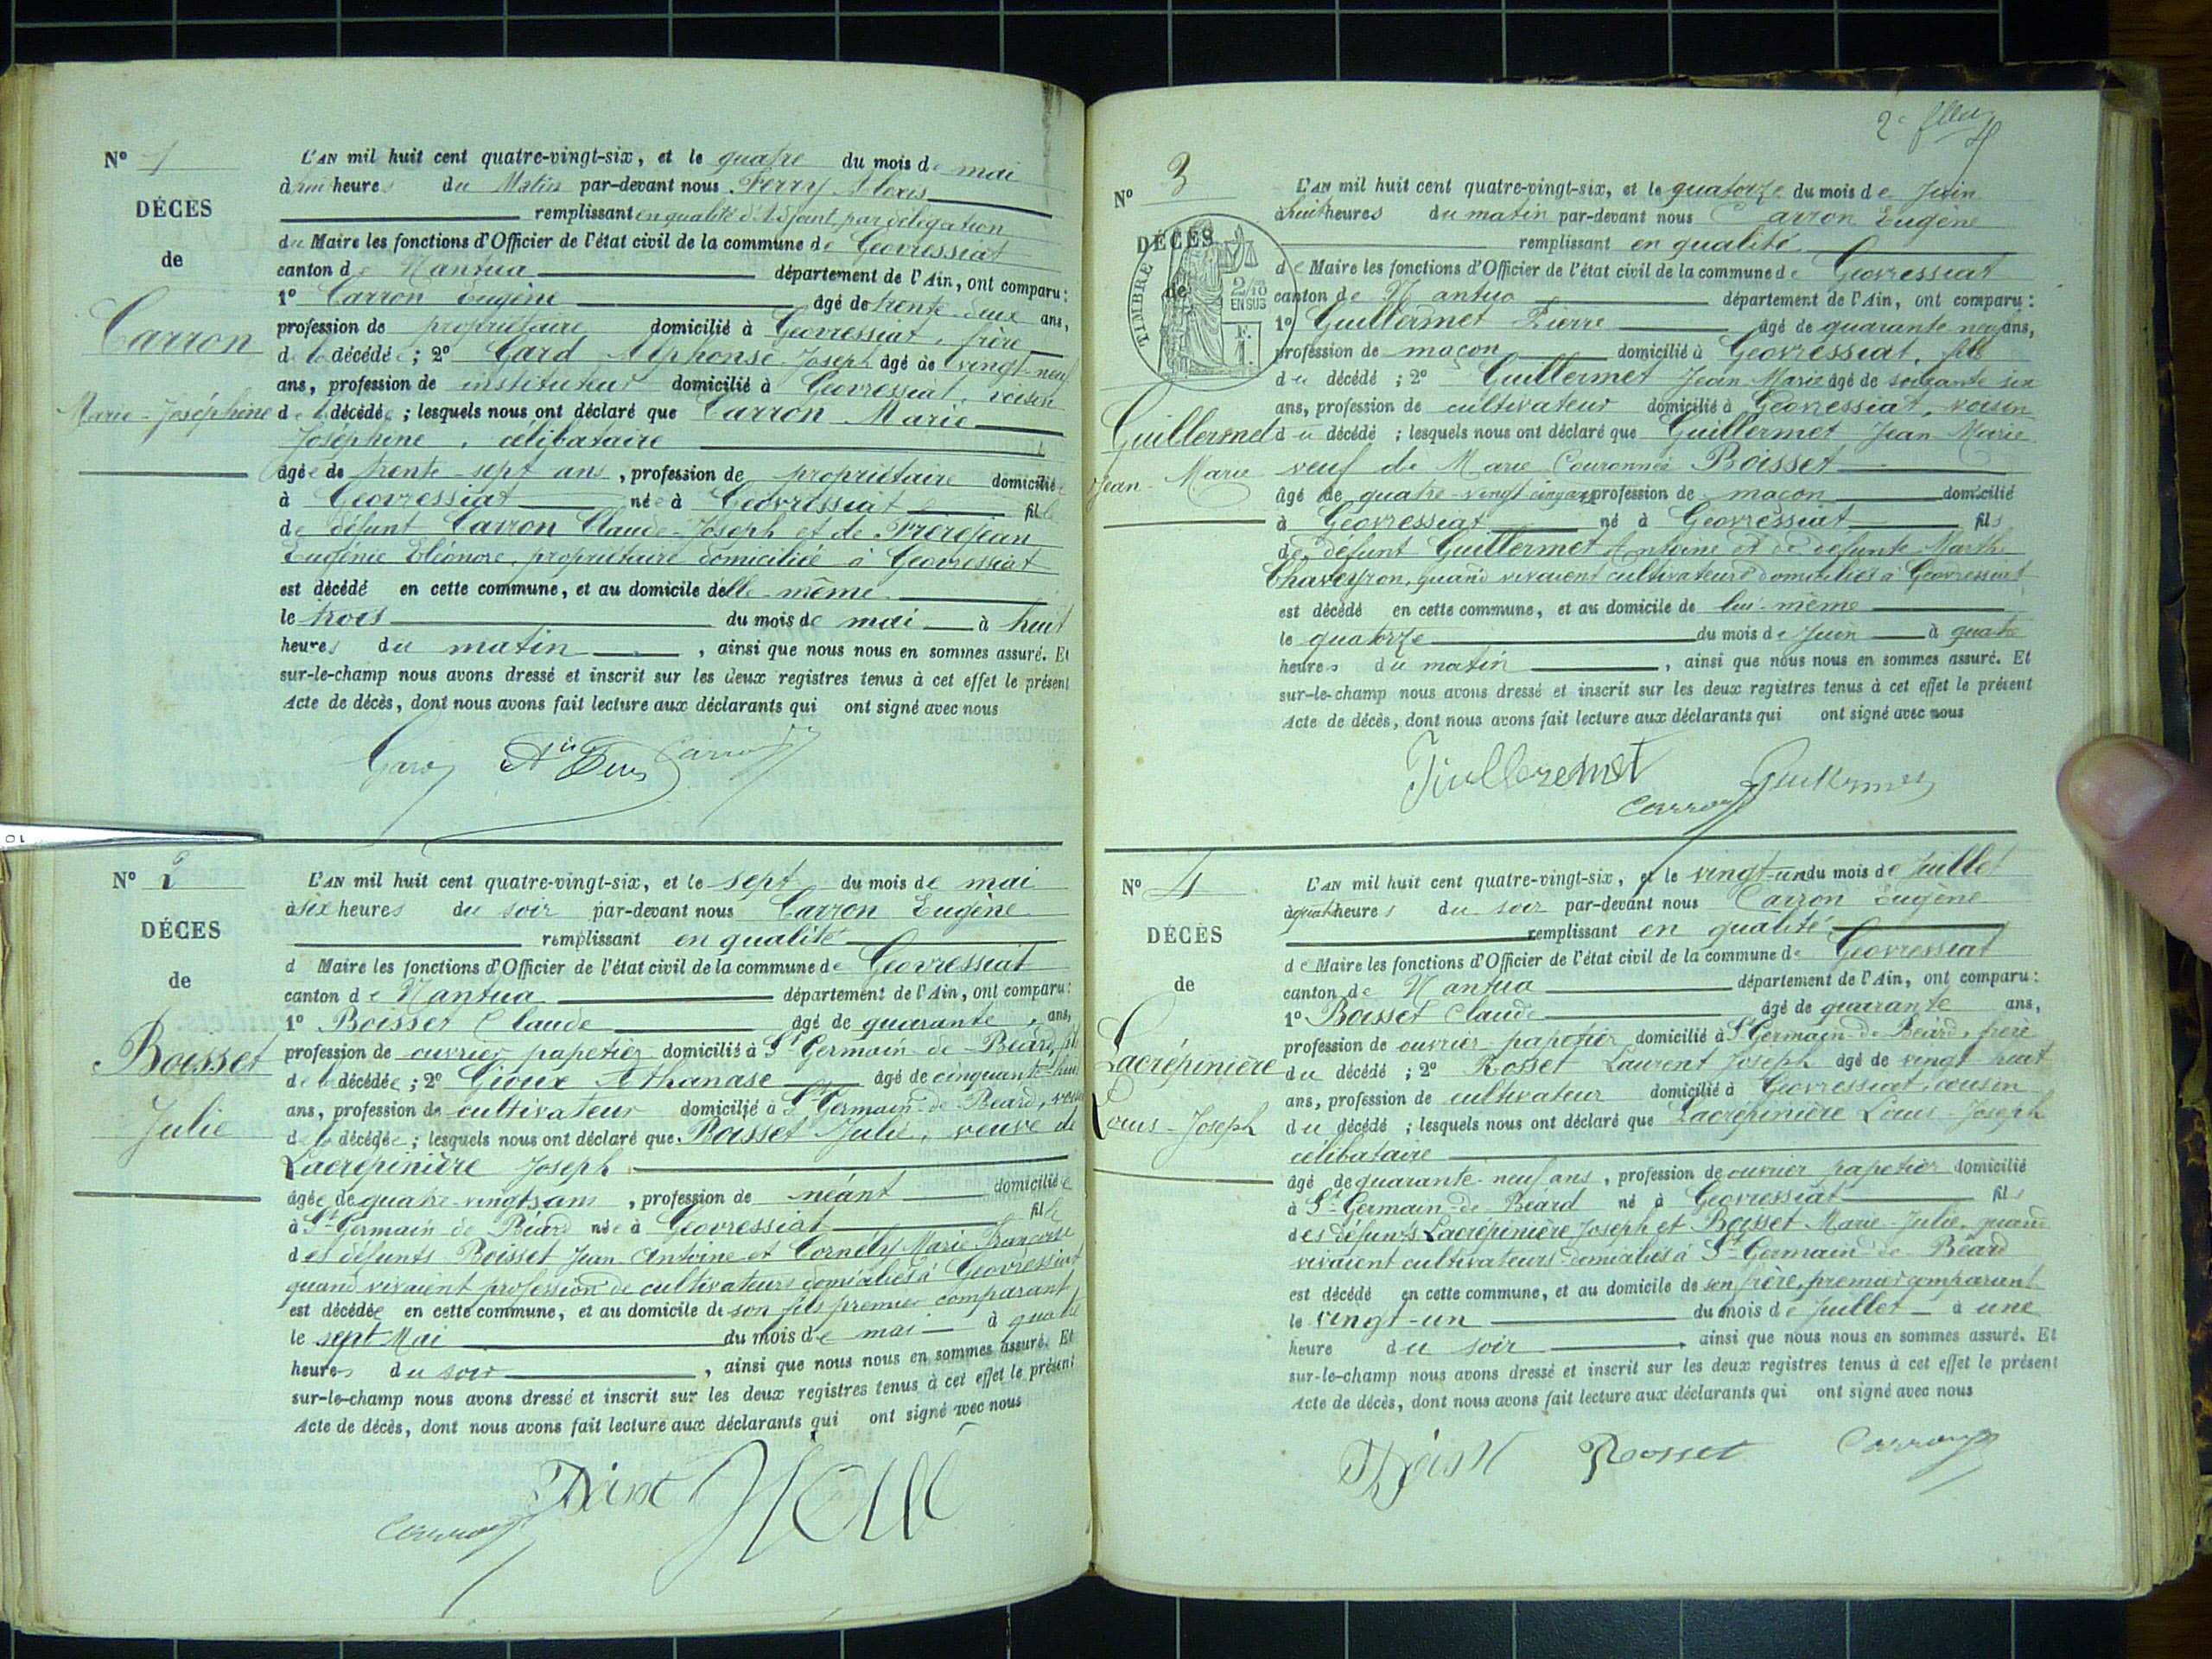 N° 1
DÉCÈS
de
Carron
Marie-Joséphine
L'AN mil huit cent quatre-vingt-six, et le quatre du mois de mai
à heures du Matin par-devant nous Ferry Alexis
remplissant en qualité d'Adjoint par délégation
du Maire les fonctions d'Officier de l'état civil de la commune de Géovressiat
canton de Nantua département de l'Ain, ont comparu :
1° Carron Eugène âgé de trente-deux ans,
profession de propriétaire domicilié à Géovressiat, frère
de la décédée ; 2° Gard Alphonse Joseph âgé de vingt-neuf
ans, profession de instituteur domicilié à Géovressiat, voisin
de la décédée ; lesquels nous ont déclaré que Carron Marie
Joséphine, célibataire
âgée de trente-sept ans, profession de propriétaire domiciliée
à Géovressiat née à Géovressiat fille
de défunt Carron Claude-Joseph et de Frèrejean
Eugénie Eléonore, propriétaire domiciliée à Géovressiat
est décédé en cette commune, et au domicile d'elle-même
le trois du mois de mai à huit
heures du matin, ainsi que nous nous en sommes assuré. Et
sur-le-champ nous avons dressé et inscrit sur les deux registres tenus à cet effet le présent
Acte de décès, dont nous avons fait lecture aux déclarants qui ont signé avec nous
Gard Carron
N° 2
DÉCÈS
de
Boisset
Julie
L'AN mil huit cent quatre-vingt-six, et le sept du mois de mai
à six heures du soir par-devant nous Carron Eugène
remplissant en qualité
d Maire les fonctions d'Officier de l'état civil de la commune de Géovressiat
canton de Nantua département de l'Ain, ont comparu :
1° Boisset Claude âgé de quarante ans,
profession de ouvrier papetier domicilié à St Germain de Béard, fils
de la décédée ; 2° Gioux Athanase âgé de cinquante-huit
ans, profession de cultivateur domicilié à St Germain de Béard, voisin
de la décédée ; lesquels nous ont déclaré que Boisset Julie, veuve de
Lacrépinière Joseph
âgée de quatre-vingts ans, profession de néant domiciliée
à St-Germain de Béard née à Géovressiat fille
des défunts Boisset Jean Antoine et Cornély Marie Françoise
quand vivaient profession de cultivateurs domiciliés à Géovressiat
est décédée en cette commune, et au domicile de son fils premier comparant
le sept Mai du mois de mai à quatre
heures du soir, ainsi que nous nous en sommes assuré. Et
sur-le-champ nous avons dressé et inscrit sur les deux registres tenus à cet effet le présent
Acte de décès, dont nous avons fait lecture aux déclarants qui ont signé avec nous
Carron
N° 3
DÉCÈS
de
TIMBRE
2/10
EN SUS
F.
1.
Guillermet
Jean-Marie
L'AN mil huit cent quatre-vingt-six, et le quatorze du mois de Juin
à huit heures du matin par-devant nous Carron Eugène
remplissant en qualité
de Maire les fonctions d'Officier de l'état civil de la commune de Géovressiat
canton de Nantua département de l'Ain, ont comparu :
1° Guillermet Pierre âgé de quarante neuf ans,
profession de maçon domicilié à Géovressiat, fils
du décédé ; 2° Guillermet Jean-Marie âgé de soixante six
ans, profession de cultivateur domicilié à Géovressiat, voisin
du décédé ; lesquels nous ont déclaré que Guillermet Jean-Marie
veuf de Marie Couronnée Boisset
âgé de quatre-vingt cinq ans profession de maçon domicilié
à Géovressiat né à Géovressiat fils
de défunt Guillermet Antoine et de défunte Marthe
Chaveyron, quand vivaient cultivateurs domiciliés à Géovressiat
est décédé en cette commune, et au domicile de lui-même
le quatorze du mois de Juin à quatre
heures du matin, ainsi que nous nous en sommes assuré. Et
sur-le-champ nous avons dressé et inscrit sur les deux registres tenus à cet effet le présent
Acte de décès, dont nous avons fait lecture aux déclarants qui ont signé avec nous
Guilleremet Guillermet
Carron
N° 4
DÉCÈS
de
Lacrépinière
Louis-Joseph
L'AN mil huit cent quatre-vingt-six, et le vingt-un du mois de Juillet
à quatre heures du soir par-devant nous Carron Eugène
remplissant en qualité
de Maire les fonctions d'Officier de l'état civil de la commune de Géovressiat
canton de Nantua département de l'Ain, ont comparu :
1° Boisset Claude âgé de quarante ans,
profession de ouvrier-papetier domicilié à St Germain-de Béard, frère
du décédé ; 2° Rosset Laurent Joseph âgé de vingt huit
ans, profession de cultivateur domicilié à Géovressiat, cousin
du décédé ; lesquels nous ont déclaré que Lacrépinière Louis-Joseph
célibataire
âgé de quarante-neuf ans, profession de ouvrier papetier domicilié
à St-Germain-de Béard né à Géovressiat fils
des défunts Lacrépinière Joseph et Boisset Marie-Julie, quand
vivaient cultivateurs domiciliés à St-Germain de Béard
est décédé en cette commune, et au domicile de son frère, premier comparant
le vingt-un du mois de Juillet à une
heure du soir, ainsi que nous nous en sommes assuré. Et
sur-le-champ nous avons dressé et inscrit sur les deux registres tenus à cet effet le présent
Acte de décès, dont nous avons fait lecture aux déclarants qui ont signé avec nous
Rosset Carron